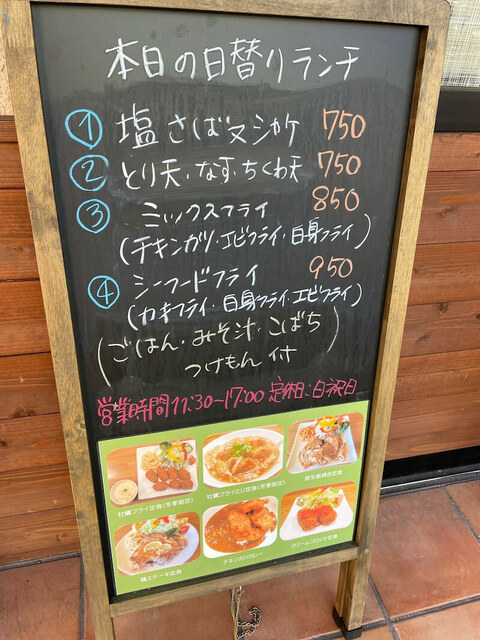 本日の日替りランチ
① 塩さば又シャケ 750
② とり天・なす・ちくわ天 750
③ ミックスフライ 850
(チキンカツ・エビフライ・白身フライ)
④ シーフードフライ 950
(カキフライ・白身フライ・エビフライ)
(ごはん・みそ汁・こばち
つけもん付)
営業時間11:30〜17:00 定休日:日祝日
牡蠣フライ定食(冬季限定)
牡蠣フライとじ定食(冬季限定)
豚生姜焼肉定食
鶏ステーキ定食
チキンカツカレー
クリームコロッケ定食